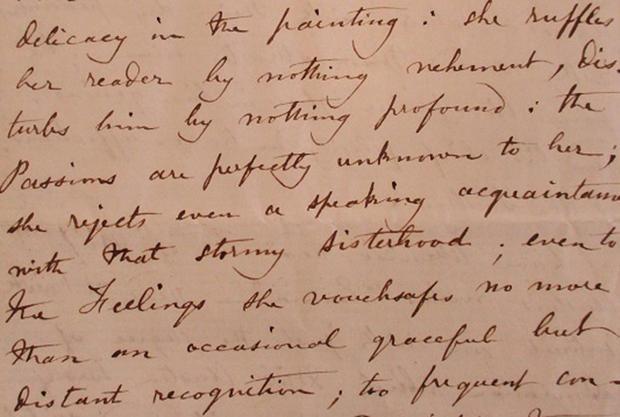 delicacy in the painting : she ruffles
her reader by nothing vehement, dis-
turbs him by nothing profound : the
Passions are perfectly unknown to her ;
she rejects even a speaking acquaintanc
with that stormy sisterhood ; even to
the Feelings she vouchsafes no more
than an occasional graceful but
distant recognition ; too frequent con-